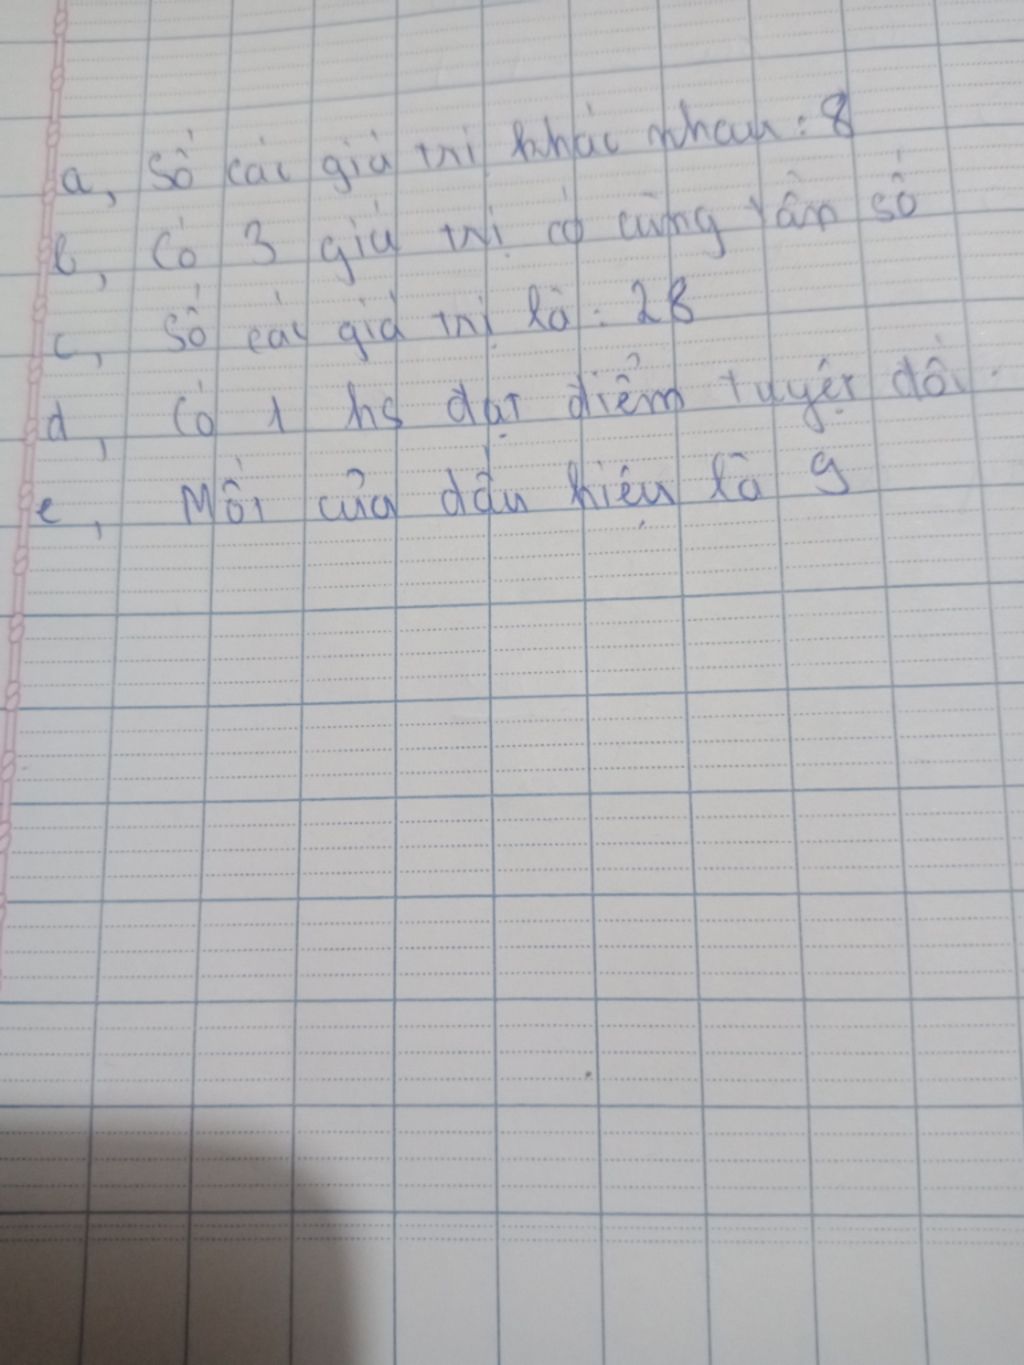 a, Số các giá trị khác nhau: 8
b, Có 3 giá trị có cùng tần số
c, Số các giá trị là: 28
d, Có 1 hs đạt điểm tuyệt đối.
e, Mốt của dấu hiệu là 9